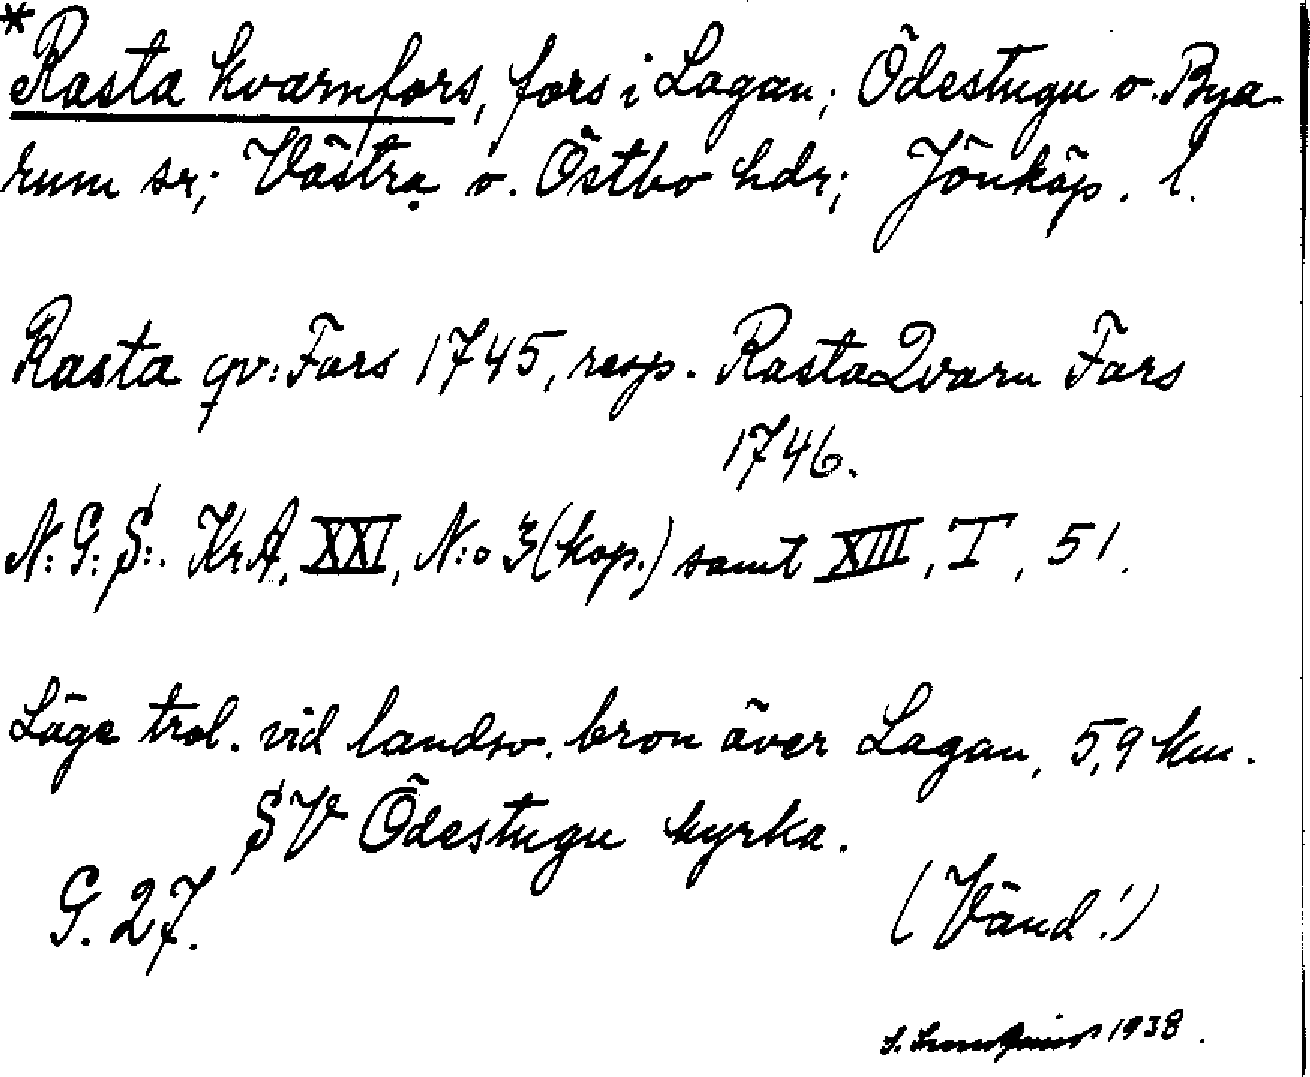 *Rasta kvarnfors, fors i Lagan; Ödestugu o. Bya-
rum sr; Västra o. Östbo hdr; Jönköp. l.
Rasta qv: Fors 1745, resp. Rasta Qvarn Fors
1746.
N: G: S:. KrA, XXI, N:o 3 (kop.) samt XIII, I, 51.
Läge trol. vid landsv. bron över Lagan, 5,9 km.
SV Ödestugu kyrka.
G. 27.
(Vänd!)
1938.